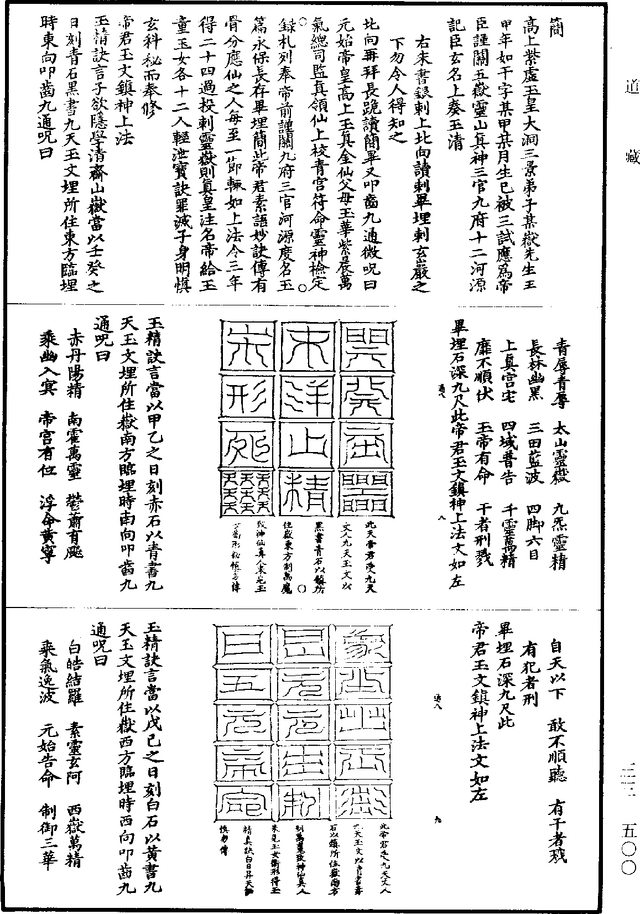 道藏
三三 五〇〇
簡
高上紫虛玉皇大洞三景弟子某嶽先生王
甲年如干字某甲某月生已被三試應爲帝
臣謹關五嶽靈山真神三官九府十二河源
記臣玄名上奏玉清
右朱書銀剌上北向讀剌畢埋剌玄巖之
下勿令人得知之
北向再拜長跪讀簡畢又叩齒九通微呪曰
元始帝皇高上玉真金仙父母玉華紫晨萬
氣總司監真領仙上校青宮符命靈神檢定
錄札列奉帝前謹關九府三官河源度名玉
篇永保長存畢埋簡此帝君素語妙訣傳有
骨分應仙之人每至一節輒如上法令三年
得二十四過投剌靈嶽則真皇注名帝給玉
童玉女各十二人輕泄寶訣罪滅子身明慎
玄科祕而奉修
帝君玉文鎮神上法
玉精訣言子欲隱學清齋山嶽當以壬癸之
日刻青石黑書九天玉文埋所住東方臨埋
時東向叩齒九通呪曰
青辱青辱 太山靈嶽 九炁靈精
長林幽黑 三田藍波 四脚六目
上真宮宅 四域普告 千靈萬精
靡不順伏 玉帝有命 干者刑戮
畢埋石深九尺此帝君玉文鎮神上法文如左
此天帝君受九天
丈人九天玉文以
黑書青石以鎮所
住嶽東方制萬魔
玉精訣言當以甲乙之日刻赤石以青書九
天玉文埋所住嶽南方臨埋時南向叩齒九
通呪曰
赤丹陽精 南霍萬靈 鬱蕭育飈
乘幽入冥 帝宮有位 浮命黃寧
自天以下 敢不順聽 有干者戮
有犯者刑
畢埋石深九尺此
帝君玉文鎮神上法文如左
此帝君受九天丈人
石以鎮所住嶽南方
制萬魔致神仙真人
玉精訣言當以戊己之日刻白石以黃書九
天玉文埋所住嶽西方臨埋時西向叩齒九
通呪曰
白皓結羅 素靈玄阿 西嶽萬精
乘氣逸波 元始告命 制御三華